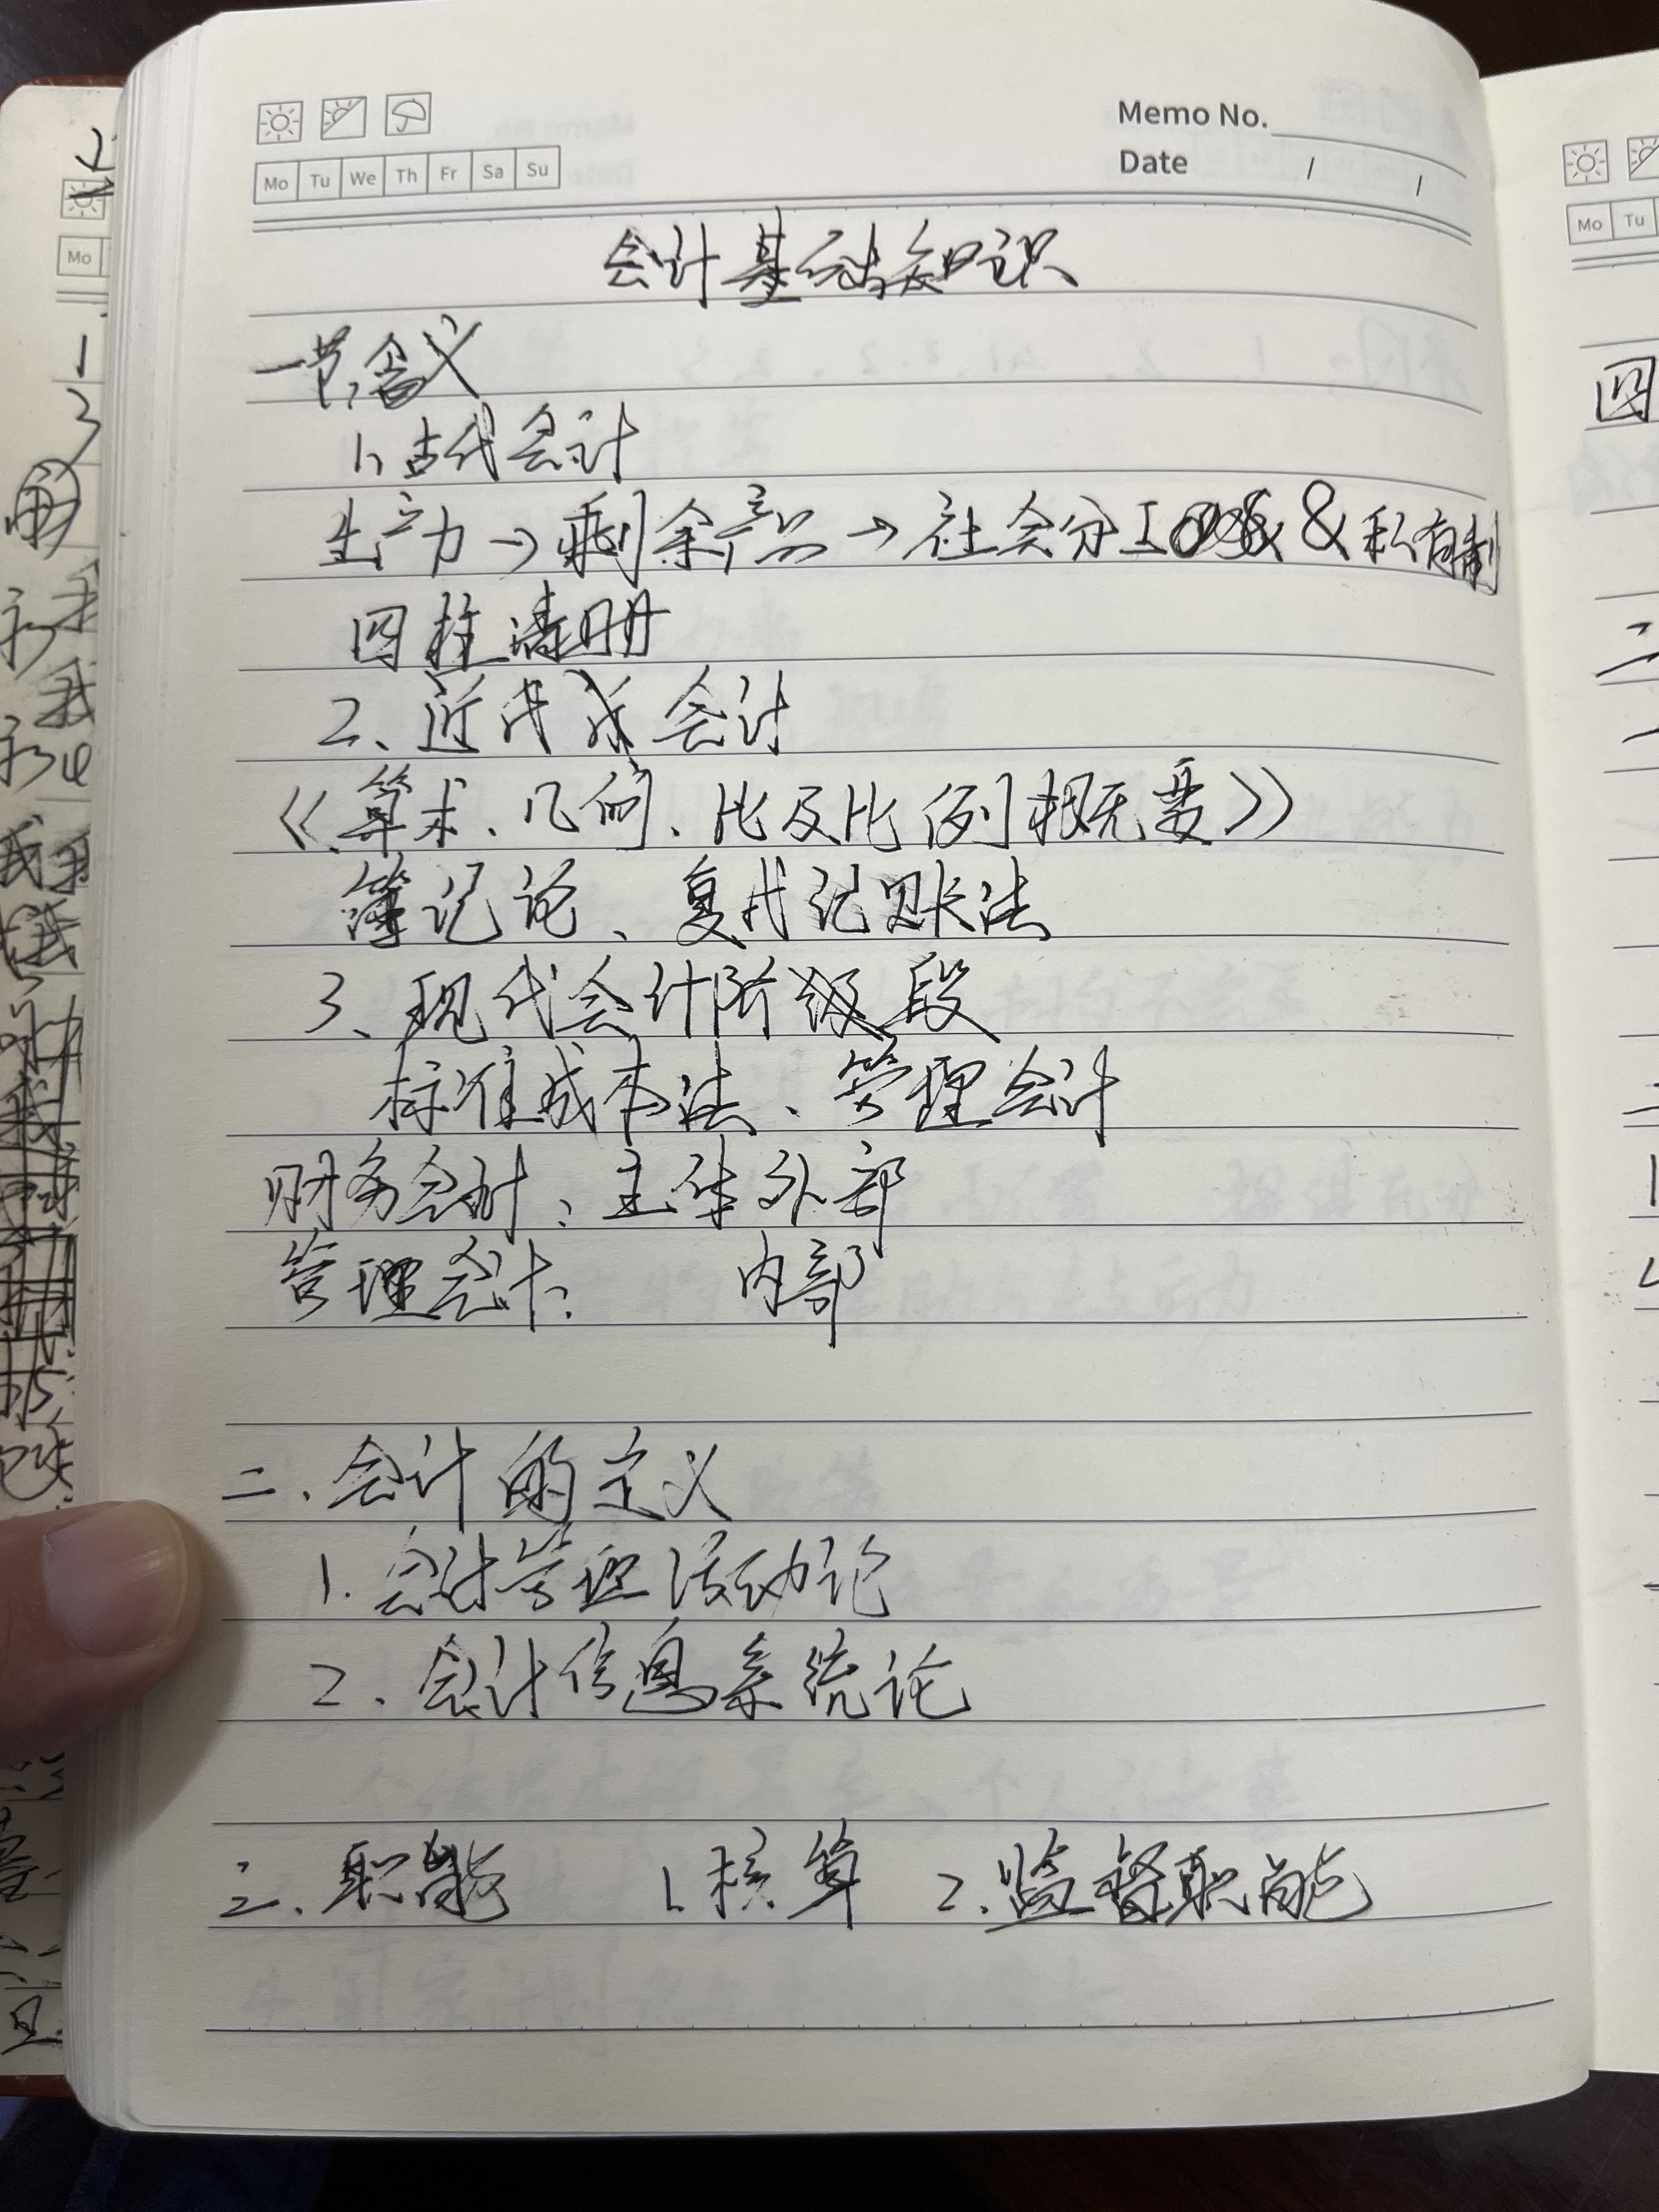 Memo No.
Date / /
Mo Tu We Th Fr Sa Su
会计基础知识
一节、含义
1、古代会计
生产力→剩余产品→社会分工 & 私有制
四柱清册
2、近代 会计
《算术、几何、比及比例概要》
簿记论、复式记账法
3、现代会计阶段
标准成本法、管理会计
财务会计、主体外部
管理会计、 内部
二、会计的定义
1. 会计管理活动论
2. 会计信息系统论
三、职能 1.核算 2.监督职能
Mo
Mo Tu
四